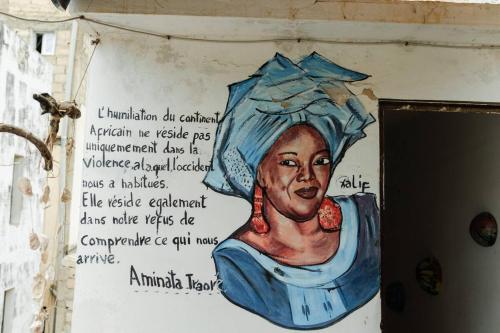 L'humiliation du continent
Africain ne réside pas
uniquement dans la
violence, alaquel l'occident
nous a habitues.
Elle réside également
dans notre refus de
comprendre ce qui nous
arrive.
Aminata Traor
Xalif